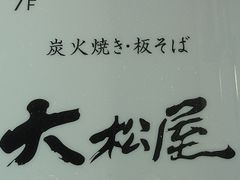 炭火焼き・板そば
大松屋